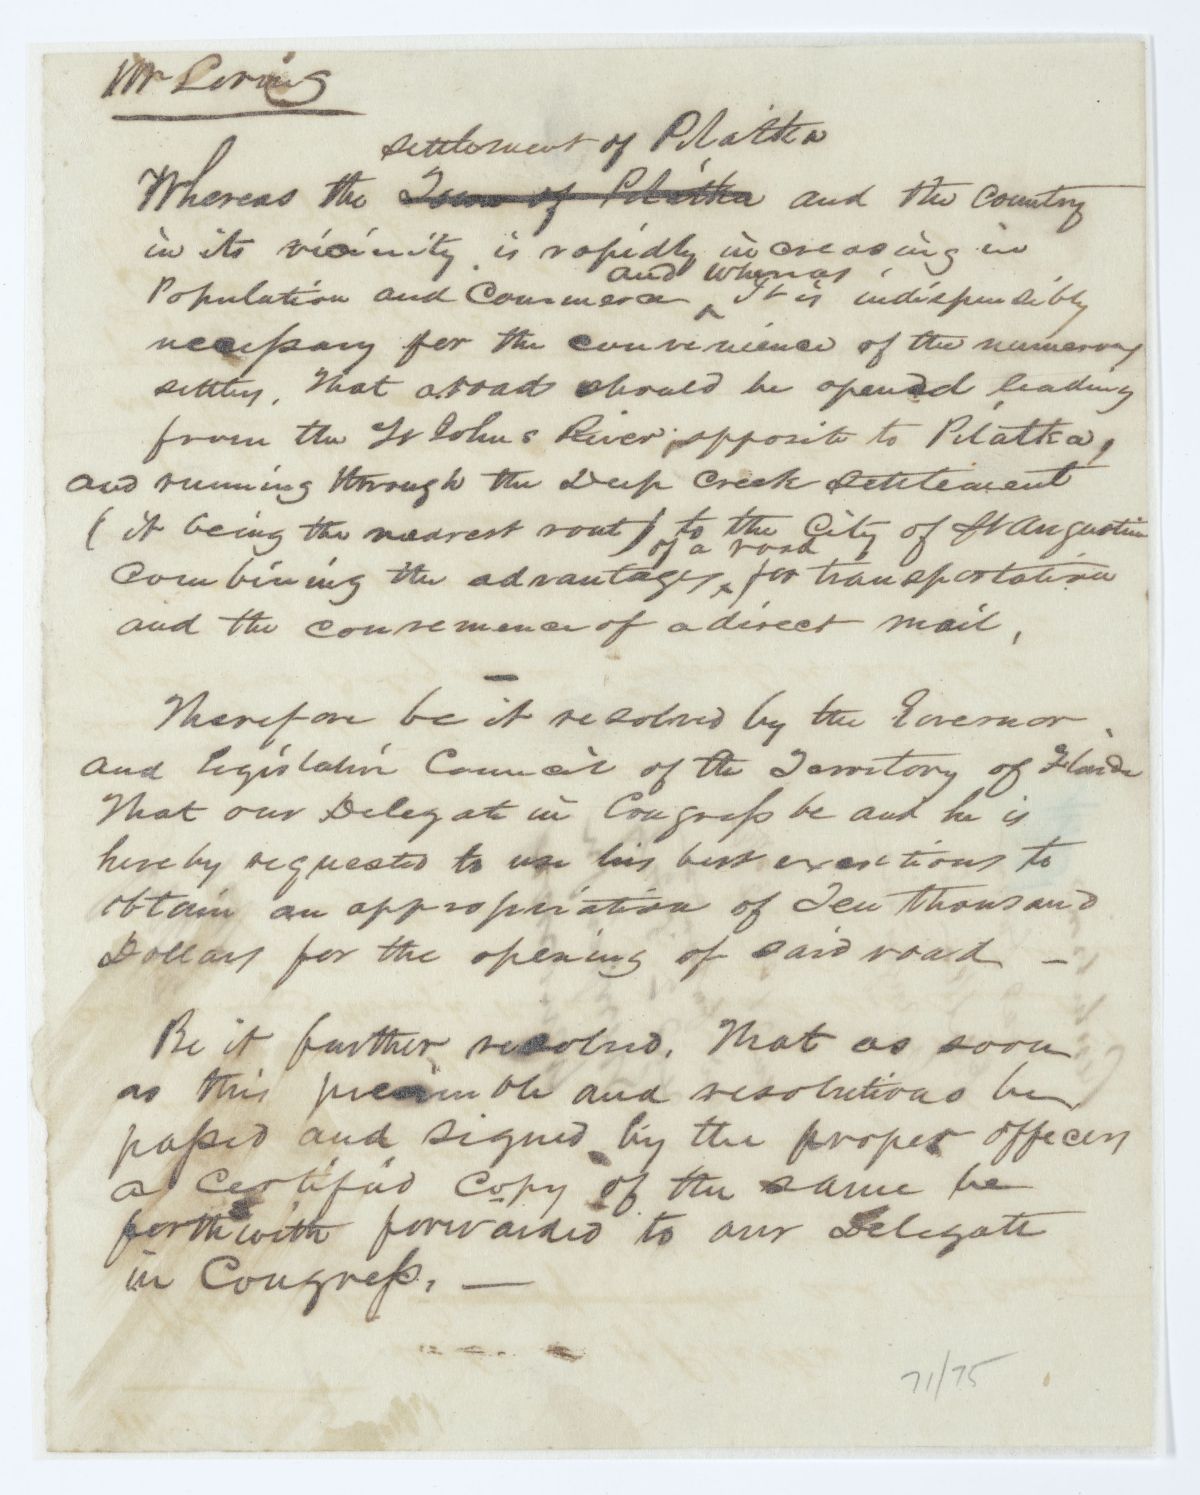 Mr Loring
settlement of Pilatka
Whereas the Town of Pilatka and the Country
in its vicinity is rapidly increasing in
and whereas
Population and Commerce ^ It is indispensibly
necessary for the convenience of the numerous
settlers, That a road should be opened leading
from the St Johns River, opposite to Pilatka,
and running through the Deep Creek Settlement
(it being the nearest rout) to the City of St Augustine
of a road
combining the advantages ^ for transportation
and the convenience of a direct mail,
Therefore be it resolved by the Governor
and Legislative Council of the Territory of Florida
That our Delegate in Congress be and he is
hereby requested to use his best exertions to
obtain an appropriation of Ten thousand
Dollars for the opening of said road —
Be it further resolved. That as soon
as this preamble and resolutions be
passed and signed by the proper officers
a Certified Copy of the same be
forthwith forwarded to our Delegate
in Congress. —
71/75